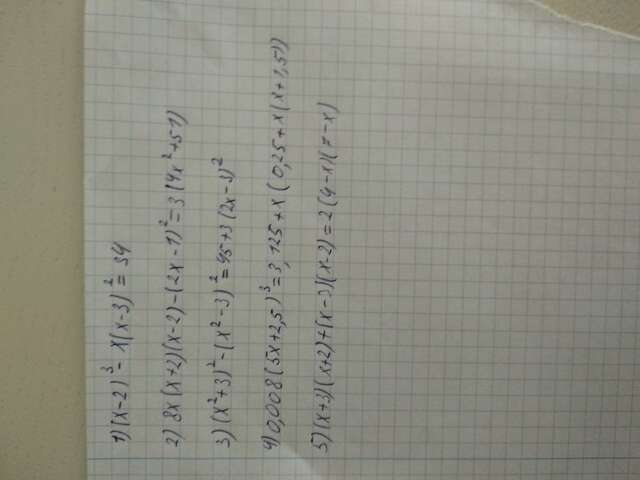 1) (x-2)³ - x(x-3)² = 34
2) 8x(x+2)(x-2)-(2x-1)²=3(4x²+51)
3) (x²+3)²-(x²-3)²=45+3(2x-3)²
4) 0,008(5x+2,5)³=3,125+x(0,25+x(x+1,5))
5) (x+3)(x+2)+(x-3)(x-2)=2(4-x)(7-x)